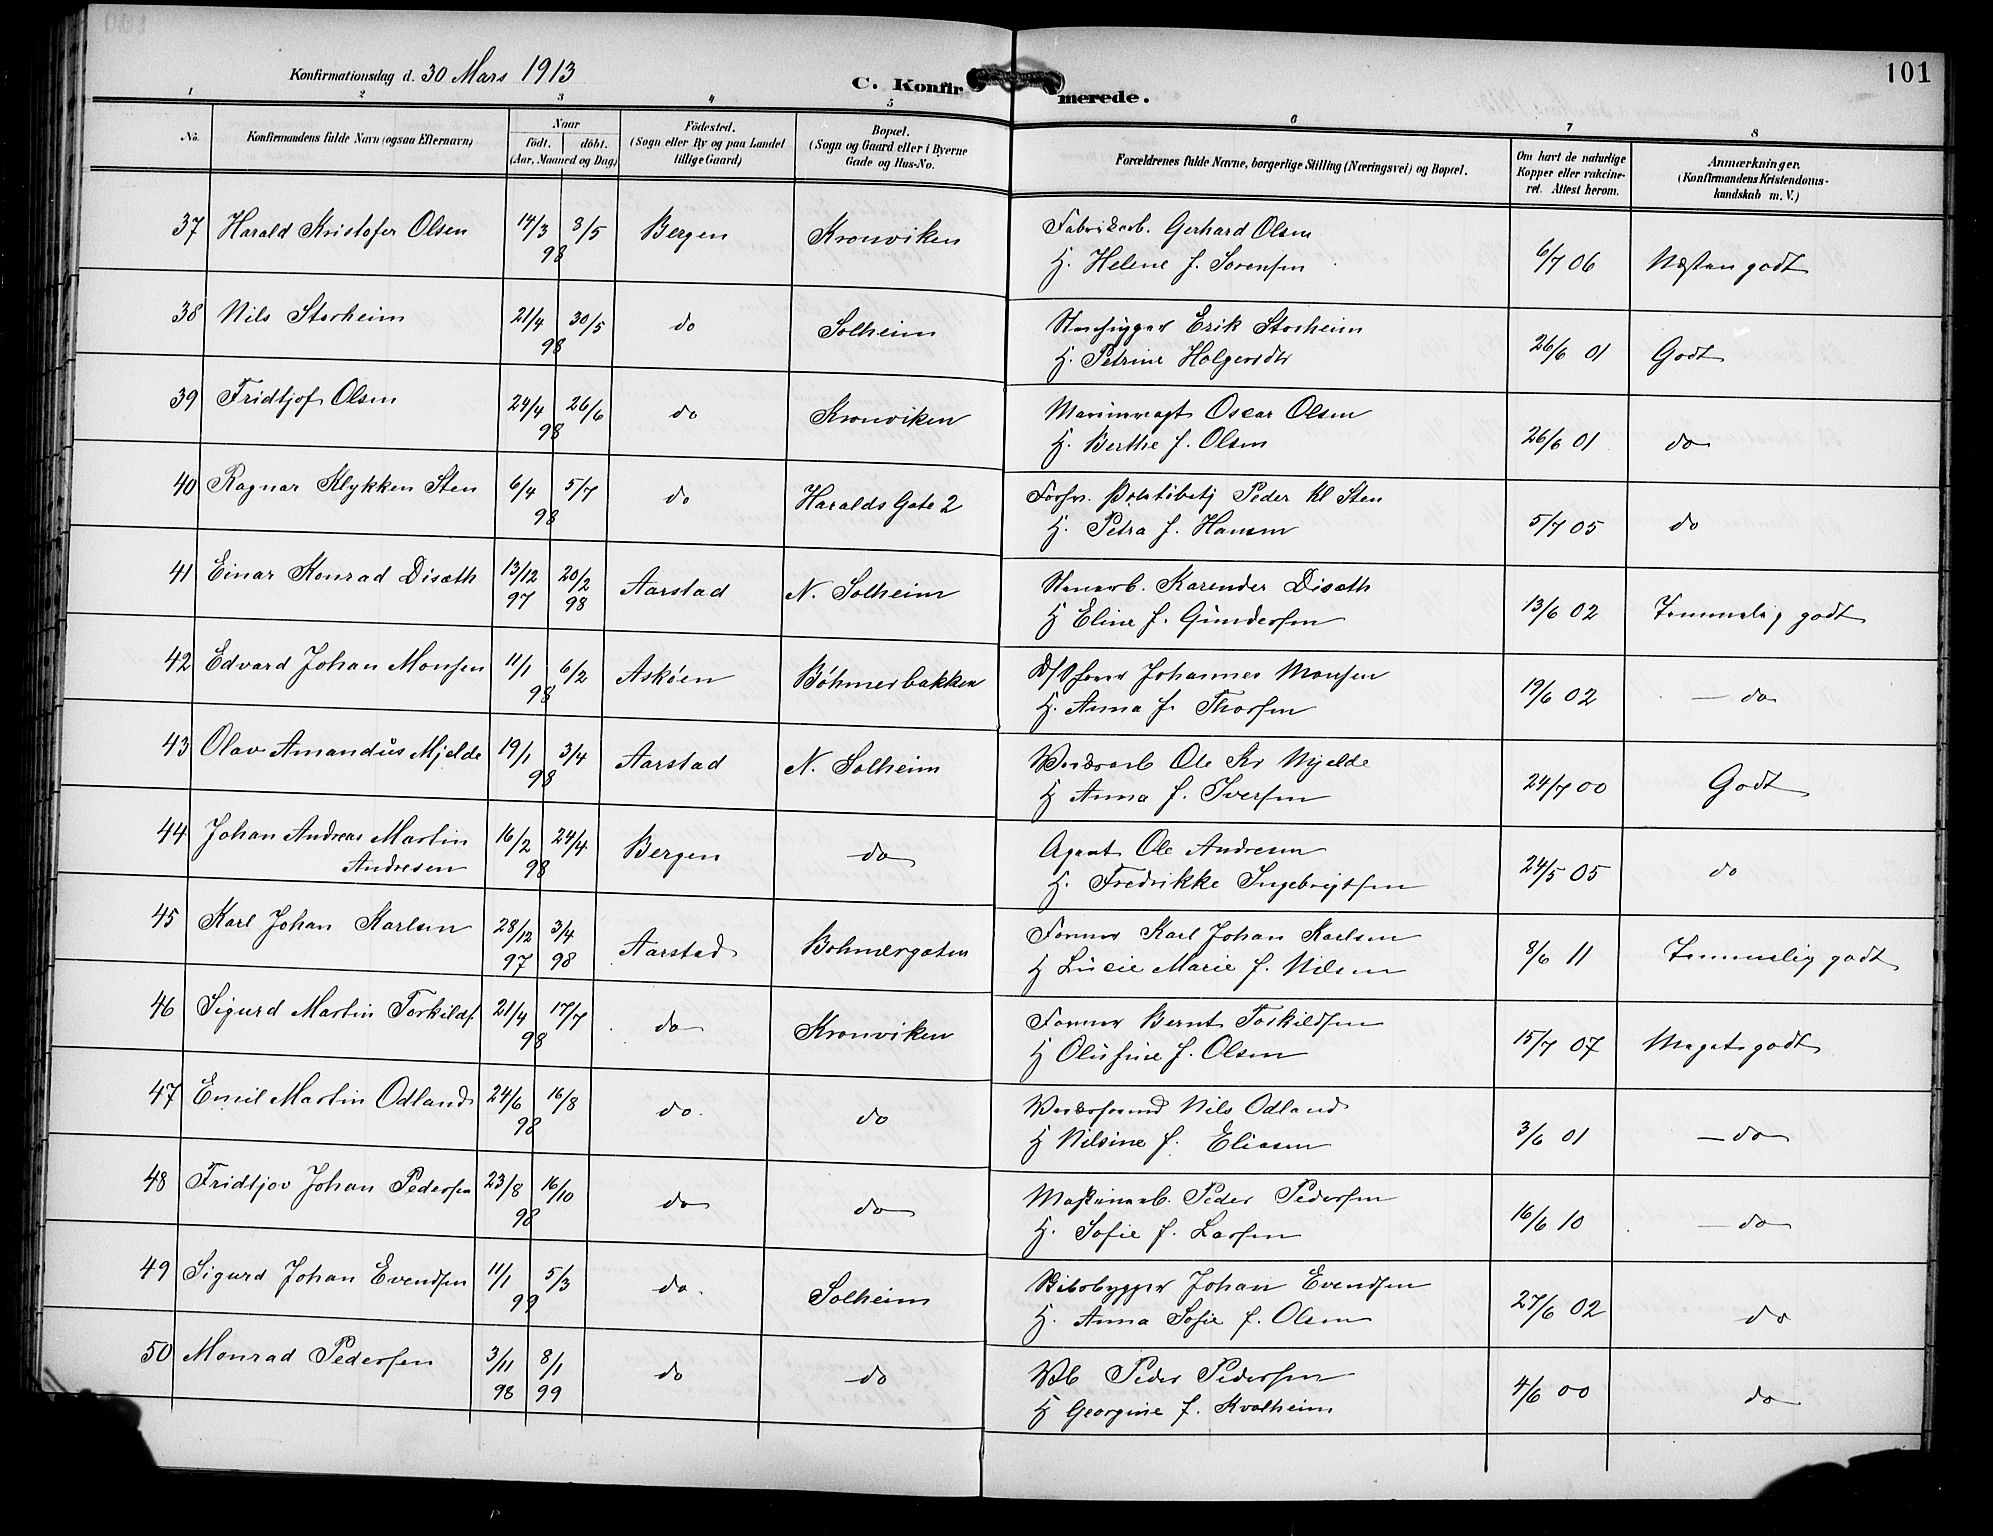 Konfirmationsdag d. 30 Mars 1913
C. Konfirmerede.
101
1 2 3 4 5 6 7 8
No.
Konfirmandens fulde Navn (ogsaa Efternavn)
Naar
født. døbt.
(Aar, Maaned og Dag)
Födested.
(Sogn eller By og paa Landet
tillige Gaard)
Bopæl.
(Sogn og Gaard eller i Byerne
Gade og Hus-No.
Forældrenes fulde Navne, borgerlige Stilling (Næringsvei) og Bopæl.
Om havt de naturlige
Kopper eller vakcine-
ret. Attest herom.
Anmærkninger.
(Konfirmandens Kristendoms-
kundskab m. V.)
37 Harald Kristofer Olsen 14/3 8/5 98 Bergen Kronviken Fabrikarb. Gerhard Olsen
H. Helene f. Sørensen 6/7 06 Næsten godt
38 Nils Storheim 21/4 30/5 98 do Solheim Stenhugger Erik Storheim
H. Petrine Holgersdtr 26/6 01 Godt
39 Fridtjof Olsen 24/4 26/6 98 do Kronviken Oscar Olsen
H. Berthe f. Olsen 26/6 01 do
40 Ragnar Klykken Sten 6/4 5/7 98 do Haralds Gate 2 Peder Kl Sten
H. Petra f. Hansen 5/7 05 do
41 Einar Konrad Disæth 13/12 97 20/2 98 Aarstad N. Solheim Stenarb. Karender Disæth
H Eline f. Gundersen 13/6 02 Temmelig godt
42 Edvard Johan Monsen 11/1 6/2 98 Askøen Bøhmerbakken Johannes Monsen
H. Anna f. Thorsen 19/6 02 — do
43 Olav Amandus Mjelde 19/1 3/4 98 Aarstad N. Solheim Verksarb Ole Kr Mjelde
H Anna f. Iversen 24/7 00 Godt
44 Johan Andreas Martin
Andresen 16/2 24/4 98 Bergen do Agent Ole Andresen
H. Fredrikke Ingebrigtsen 24/5 05 do
45 Karl Johan Karlsen 28/12 97 3/4 98 Aarstad Bøhmergaten Former Karl Johan Karlsen
H Lucie Marie f. Nilsen 8/6 11 Temmelig godt
46 Sigurd Martin Torkildsf 21/4 17/7 98 do Kronviken Former Bernt Torkildsen
H Olufine f. Olsen 15/7 07 Meget godt
47 Emil Martin Odland 24/6 16/8 98 do. do Nils Odland
H Nilsine f. Eliasen 3/6 01 — do
48 Fridtjov Johan Pedersen 23/8 16/10 98 do do Maskinarb. Peder Pedersen
H. Sofie f. Larsen 16/6 10 — do
49 Sigurd Johan Evendsen 11/1 5/3 99 do. Solheim Skibsbygger Johan Evendsen
H. Anna Sofie f. Olsen 27/6 02 do
50 Monrad Pedersen 3/11 98 8/1 99 do do Peder Pedersen
H Georgine f. Kvalheim 4/6 00 do